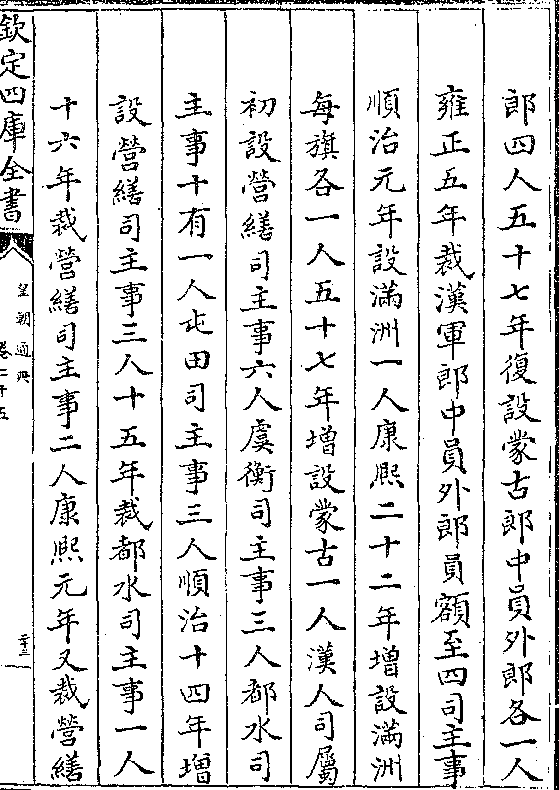 郎四人五十七年復設蒙古郎中員外郎各一人
雍正五年裁漢軍郎中員外郎員額至四司主事
順治元年設滿洲一人康熙二十二年增設滿洲
每旗各一人五十七年增設蒙古一人漢人司屬
初設營繕司主事六人虞衡司主事三人都水司
主事十有一人屯田司主事三人順治十四年增
設營繕司主事三人十五年裁都水司主事一人
十六年裁營繕司主事二人康熙元年又裁營繕
欽定四庫全書
皇朝通典
卷二十五